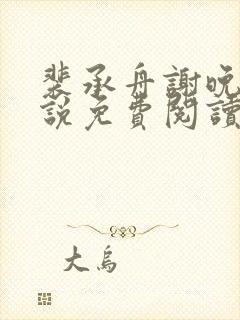 裴承舟謝晚
說免費閱讀
大烏